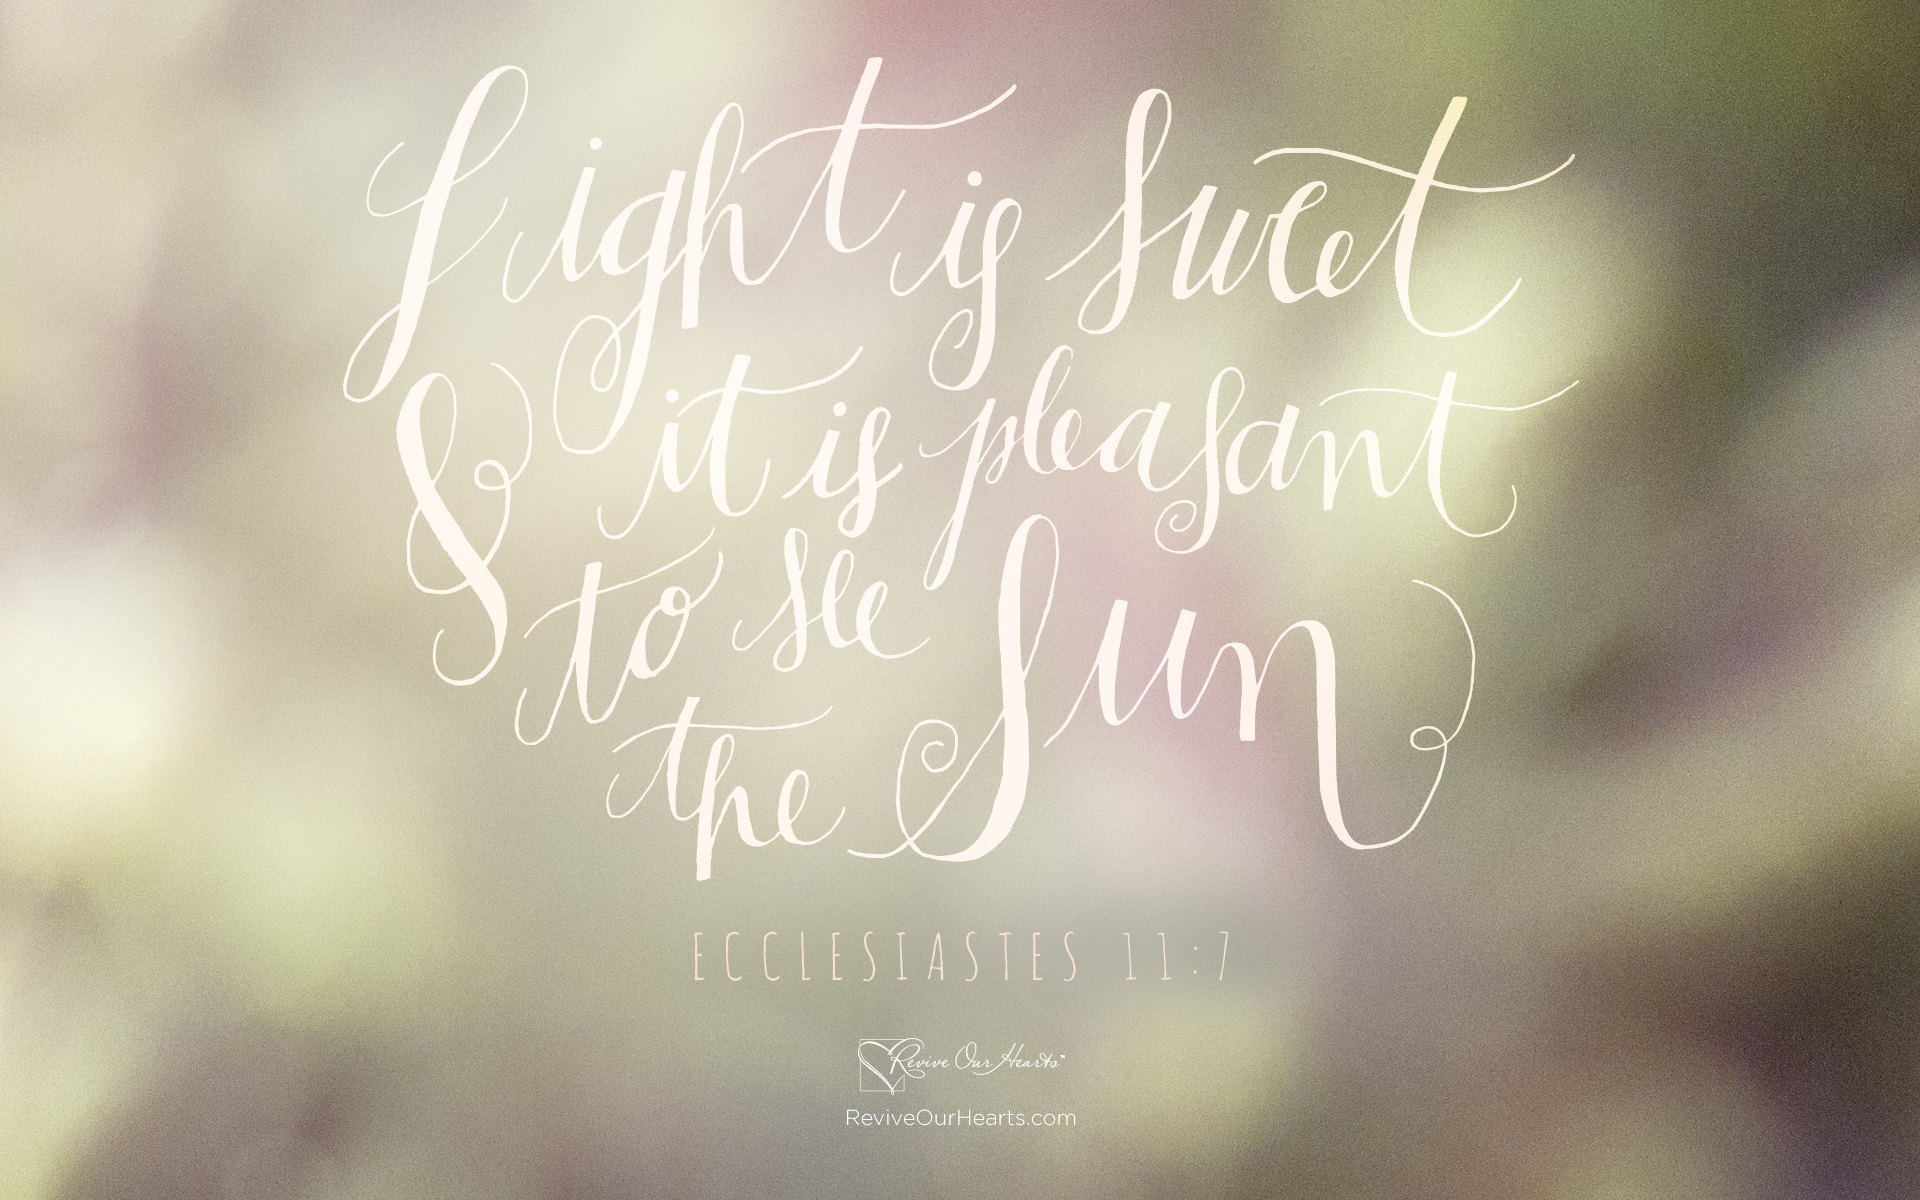 Light is sweet
& it is pleasant
to see
the Sun
ECCLESIASTES 11:7
Revive Our Hearts™
ReviveOurHearts.com